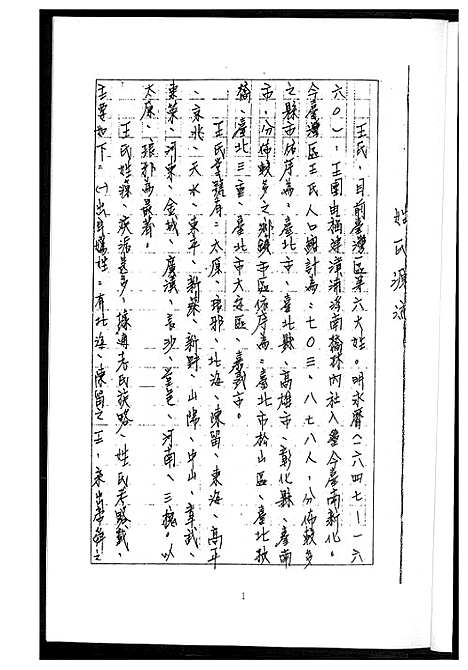 姓氏源流
王氏，目前臺灣區第六大姓。明永曆（一六四七—一六
六〇），王團由福建漳浦海南橋林內社入墾今臺南新化。
今臺灣區王氏人口總計為：七〇三、八七八人，分佈較多
之縣市依序為：臺北縣、臺北市、高雄市、彰化縣、臺南
市，分佈較多之鄉鎮市區依序為：臺北市松山區、臺北板
橋、臺北三重、臺北市大安區、嘉義市。
王氏堂號有：太原、琅邪、北海、陳留、東海、高平
、京兆、天水、東平、新蔡、新野、山陽、中山、章武、
東萊、河東、金城、廣漢、長沙、堂邑、河南、三槐。以
太原、琅邪為最著。
王氏姓源，族派甚多，據通志氏族略、姓氏考略載，
主要如下：㈠出自媯姓：有北海、陳留之王，系出帝舜之
1